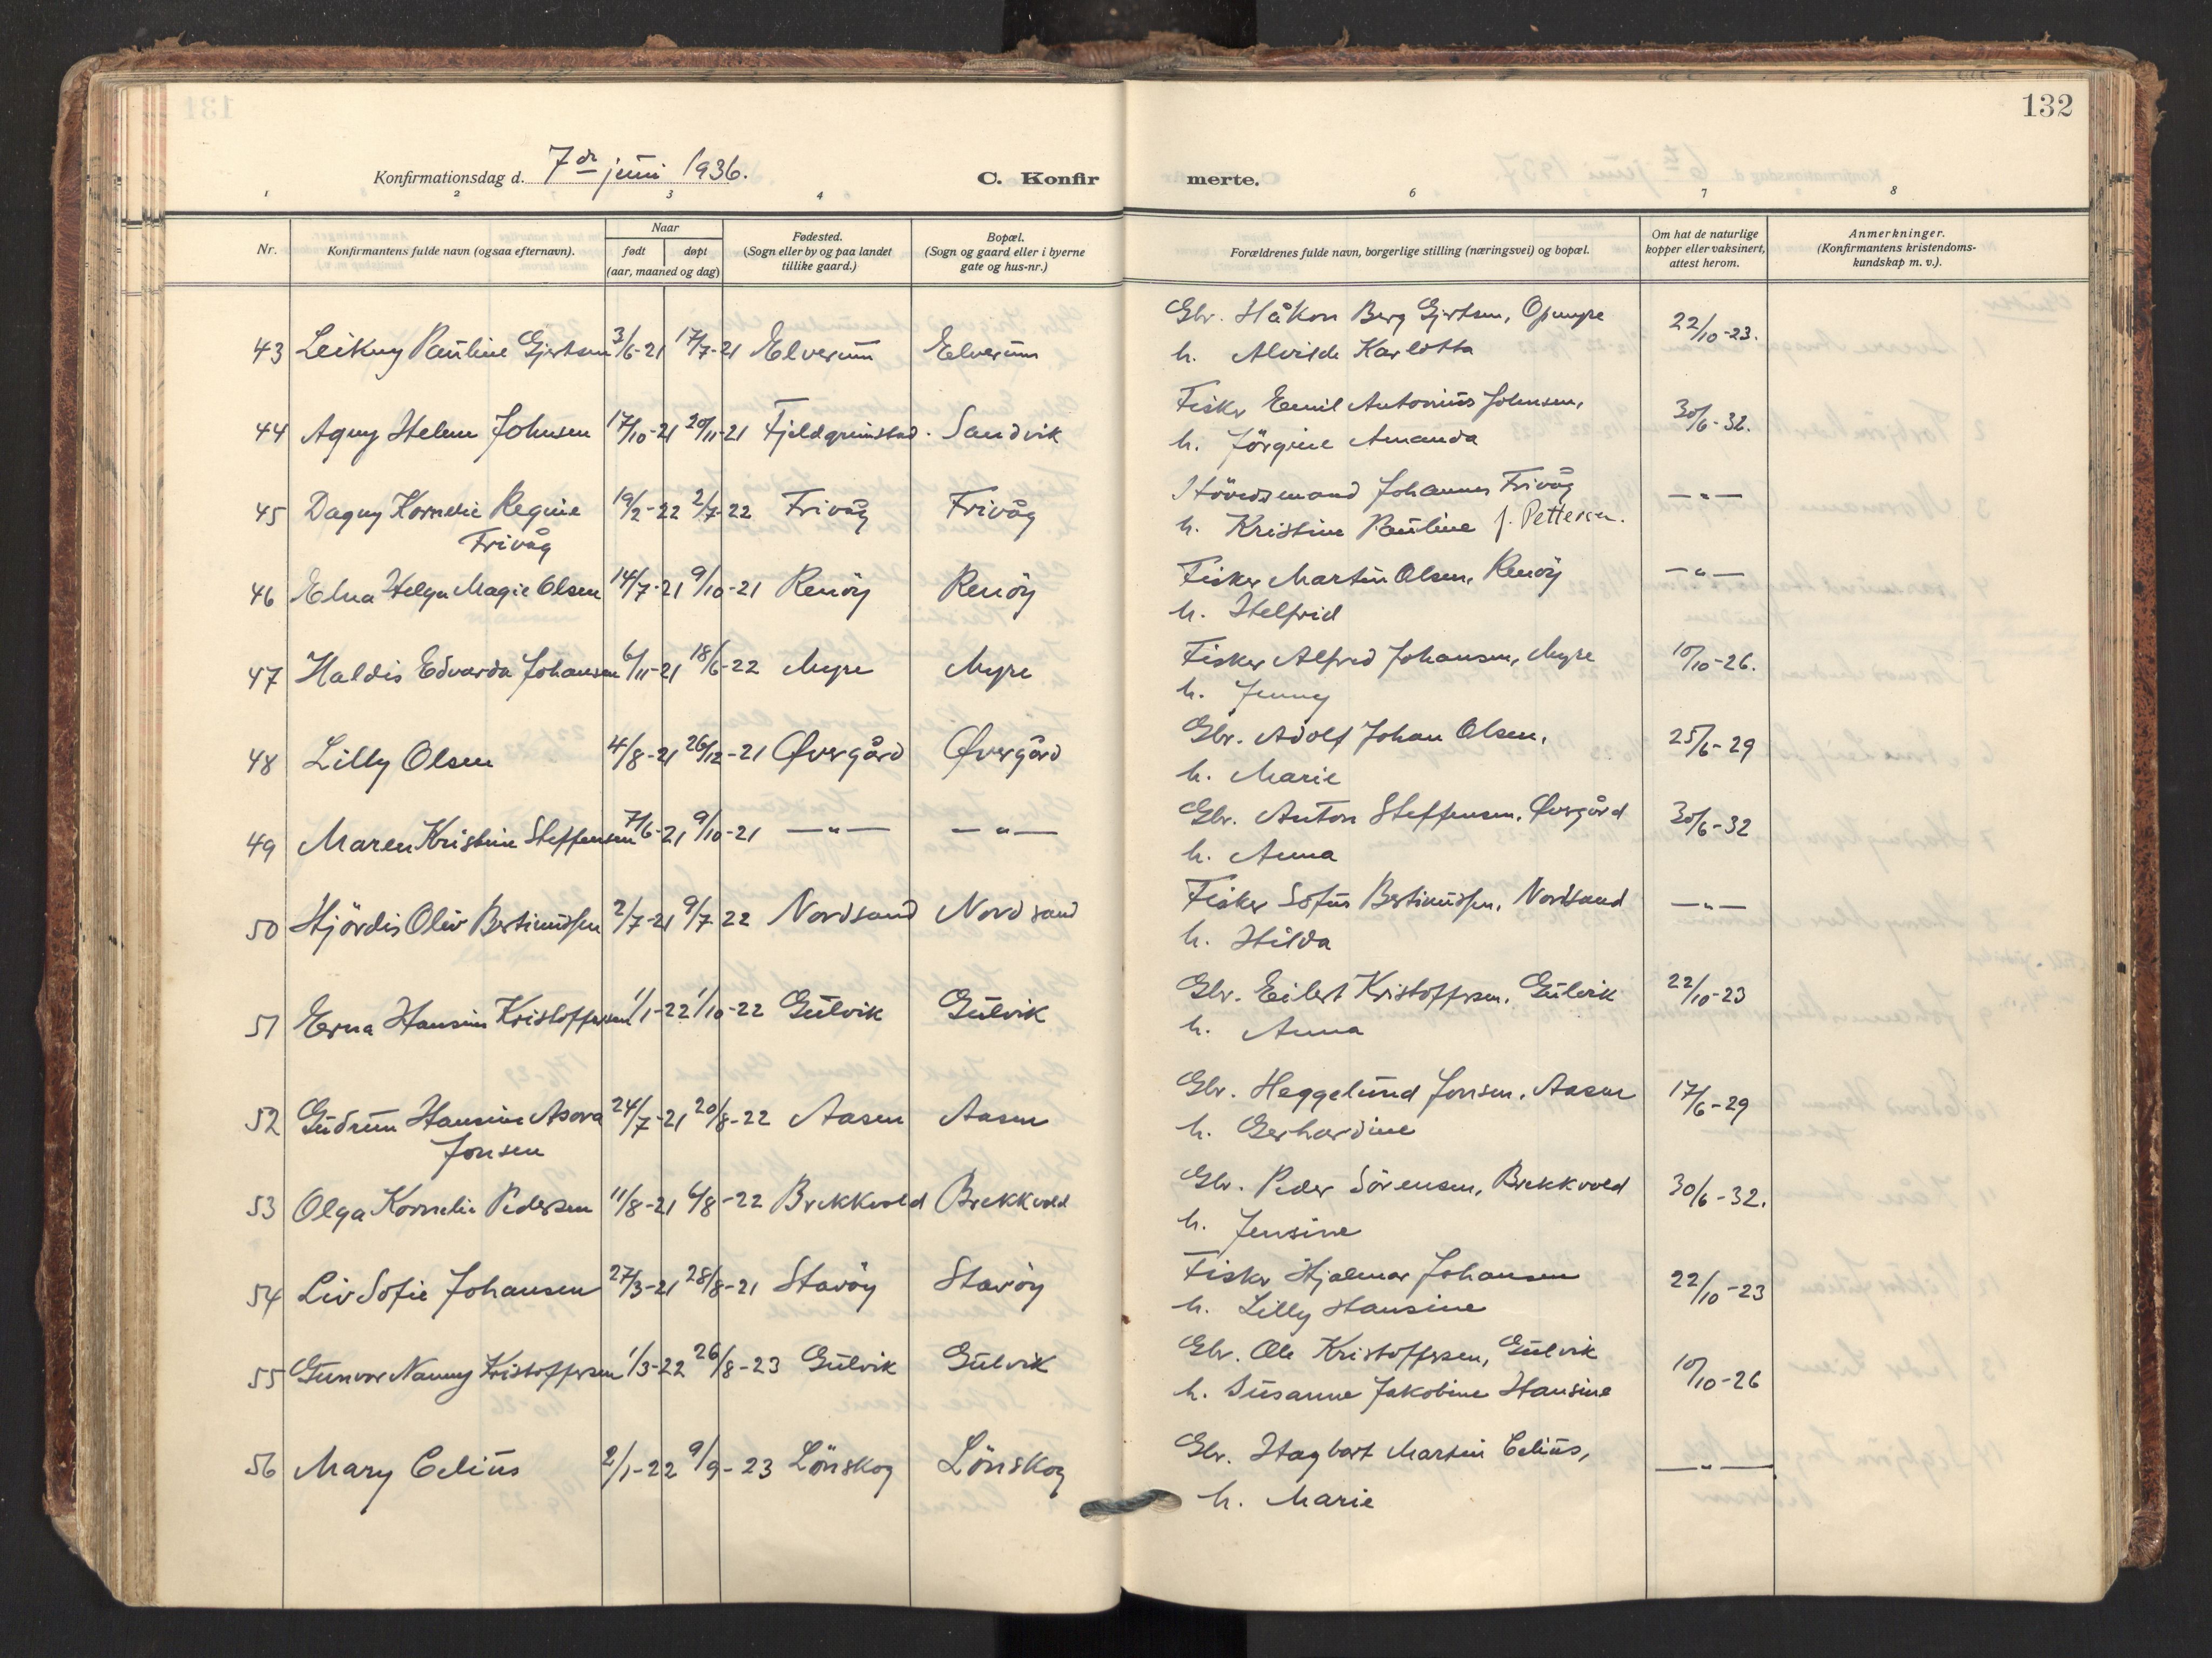 132
Konfirmationsdag d. 7de juni 1936. C. Konfir merte.
1 2 3 4 6 7 8
Nr. Konfirmantens fulde navn (ogsaa efternavn). Naar født døpt (aar, maaned og dag) Fødested. (Sogn eller by og paa landet tillike gaard.) Bopæl. (Sogn og gaard eller i byerne gate og hus-nr.) Forældrenes fulde navn, borgerlige stilling (næringsvei) og bopæl. Om hat de naturlige kopper eller vaksinert, attest herom. Anmerkninger. (Konfirmantens kristendoms-kundskap m. v.).
43 Leikny Pauline Gjertsen 3/6-21 17/7-21 Elverum Elverum Gbr. Håkon Berg Gjertsen, 22/10-23.
h. Alvilde Karlotta
44 Agny Helene Johnsen 17/10-21 20/11-21 Fjeldgrimstad. Sandvik Fisker Emil Antonius Johnsen, 30/6-32.
h. Jörgine Amanda
45 Dagny Kornelie Regine 19/2-22 2/7-22 Frivåg Frivåg Johannes Frivåg —"—
Frivåg h. Kristine Pauline f. Pettersen.
46 Edna Helga Magie Olsen 14/7-21 9/10-21 Renöy Renöy Fisker Martin Olsen, Renöy —"—
h. Helfrid
47 Haldis Edvarda Johansen 6/11-21 18/6-22 Myre Myre Fisker Alfred Johansen, Myre 10/10-26.
h. Jenny
48 Lilly Olsen 4/8-21 26/12-21 Øvergård Øvergård Gbr. Adolf Johan Olsen, 25/6-29
h. Marie
49 Maren Kristine Steffensen 7/6-21 9/10-21 —"— —"— Gbr. Anton Steffensen, Øvergård 30/6-32
h. Anna
50 Hjördis Oliv Bertinussen 2/7-21 9/7-22 Nordsand Nordsand Fisker Sofus Bertinussen, Nordsand —"—
h. Hilda
51 Erna Hansine Kristoffersen 1/1-22 1/10-22 Gulvik Gulvik Gbr. Eilert Kristoffersen, Gulvik 22/10-23
h. Anna
52 Gudrun Hansine Asora 24/7-21 20/8-22 Aasen Aasen Gbr. Heggelund Jonsen, Aasen 17/6-29
Jonsen h. Gerhardine
53 Olga Kornelie Pedersen 11/8-21 6/8-22 Brekkvold Brekkvold Gbr. Peder Sörensen, Brekkvold 30/6-32.
h. Jensine
54 Liv Sofie Johansen 27/3-21 28/8-21 Stavöy Stavöy Fisker Hjalmar Johansen 22/10-23
h. Lilly Hansine
55 Gunvor Nanny Kristoffersen 1/3-22 26/8-23 Gulvik Gulvik Gbr. Ole Kristoffersen, Gulvik 10/10-26
h. Susanne Jakobine Hansine
56 Mary Celius 2/1-22 9/9-23 Lönskog Lönskog Gbr. Hagbart Martin Celius, —"—
h. Marie